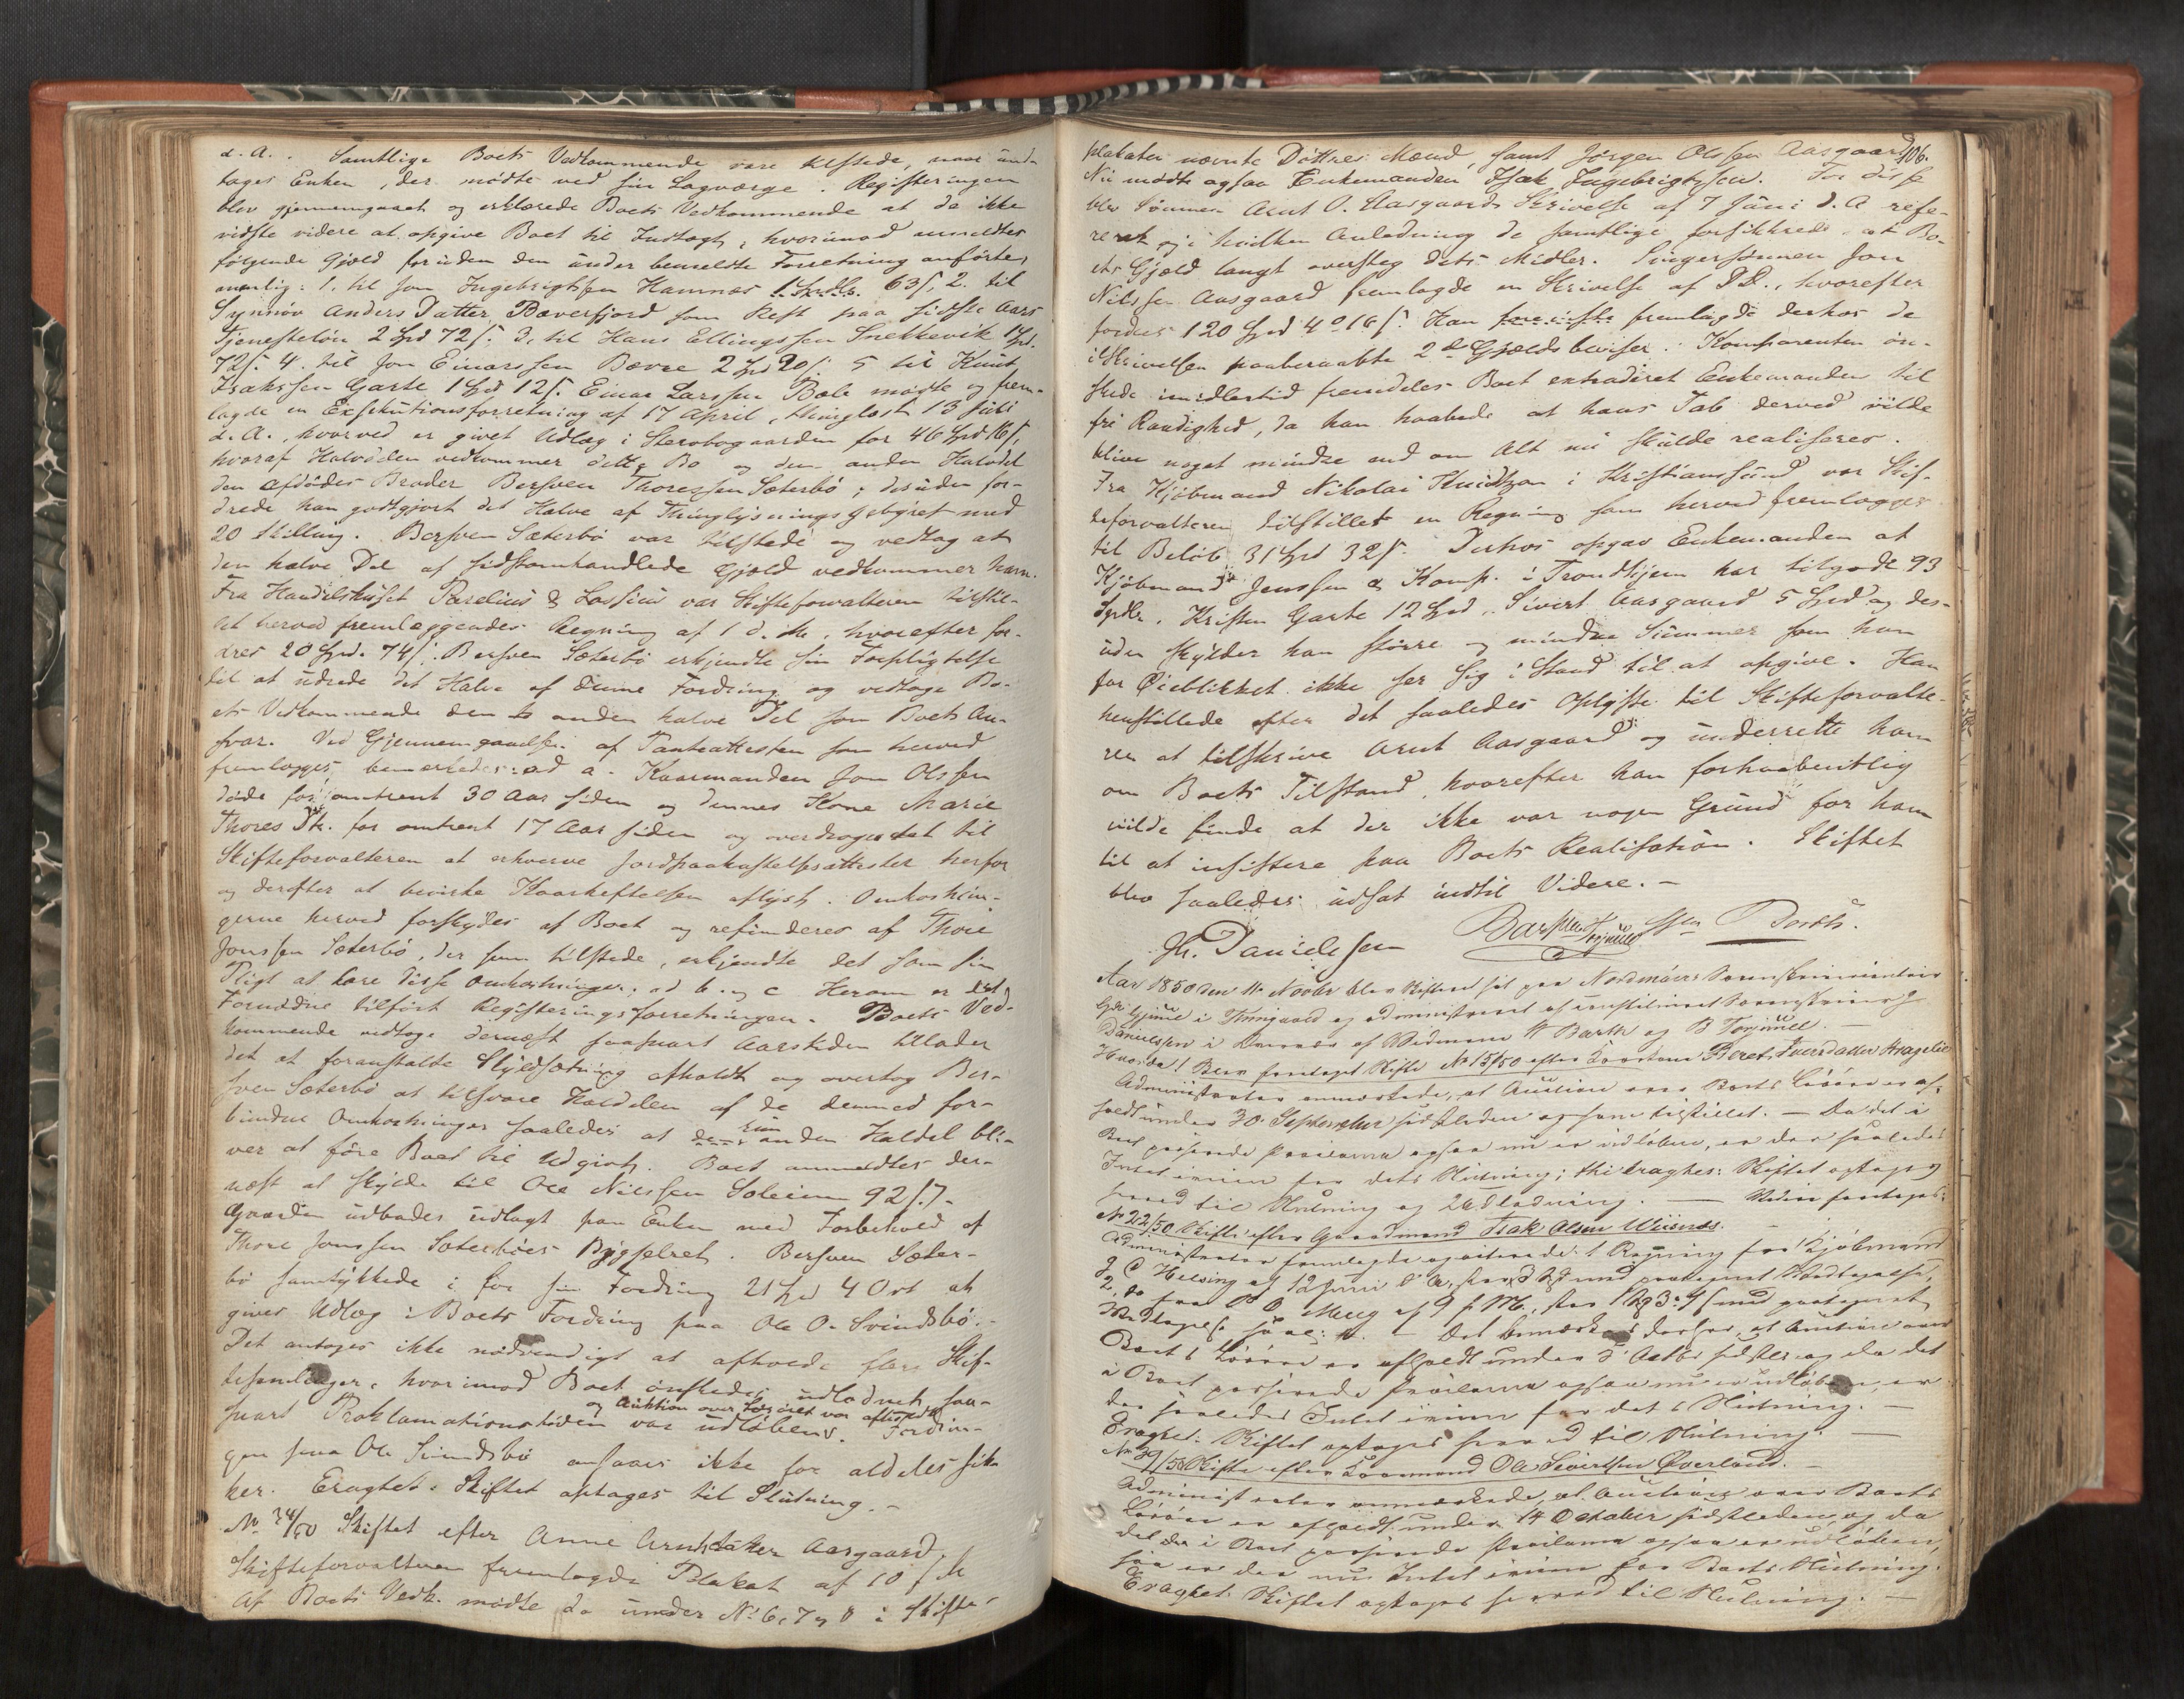 d. A. Samtlige Boets Vedkommende vare tilstede, naar und-
tages Enken, der mødte ved sin Lagværge. Registeringen
blev gjennemgaaet og erklærede Boets Vedkommende at de ikke
vidste videre at opgive Boet til Indtægt, hvorimod anmeldtes
følgende Gjæld foruden den under benævnte Forretning anførte,
nemlig: 1, til Jon Ingebrigtsen Hamnes 1 Spdlr. 63 s, 2. til
Synnøv Anders Datter Bæverfjord som Rest paa sidste Aars
Tjenesteløn 2 Spd 72 s. 3, til Hans Ellingsen Snekkevik 1 Spd.
72 s. 4. til Jon Einarssen Bævre 2 Spd 20 s. 5 til Knut
Isakssen Garte 1 Spd 12 s. Einar Larssen Bøle mødte og frem-
lagde en Exsekutionsforretning af 17 April, thinglæst 13 Juli
d. A., hvorved er givet Udlæg i Stervbogaarden for 46 Spd 16 s,
hvoraf Halvdelen vedkommer dette Bo og den anden Halvdel
den afdødes Broder Bersven Thoressen Sæterbø; desuden for-
drede han godtgjort det Halve af Thinglysningsgebyret med
20 Skilling. Bersven Sæterbø var tilstede og vedtog at
den halve Del af sidstomhandlede Gjæld vedkommer ham.
Fra Handelshuset Parelius & Lossius var Skifteforvalteren tilstil-
let herved fremlæggendes Regning af 1 d. M., hvorefter for-
dres 20 Spd. 74 s. Bersven Sæterbø erkjendte sin Forpligtelse
til at udrede det Halve af denne Fordring og vedtoge Bo-
ets Vedkommende den anden halve Del som Boets An-
svar. Ved Gjennemgaaelsen af Panteattesten som herved
fremlægges, bemærkedes: ad a. Kaarmanden Jon Olssen
døde for omtrent 30 Aar siden og dennes Kone Marie
Thores Dtr. for omtrent 17 Aar siden og overdroges det til
Skifteforvalteren at erhverve Jordpaakastelsesattester herfor
og derefter at bevirke Kaarheftelsen aflyst. Omkostnin-
gerne herved forskydes af Boet og refunderes af Thore
Jonssen Sæterbø, der som tilstede, erkjendte det som sin
Pligt at bære disse Omkostninger; ad b. og c Herom er det
Fornødne tilført Registeringsforretningen. Boets Ved-
kommende vedtoge dernæst saasnart Aarstiden tillader
det at foranstalte Skyldsætning afholdt og overtog Ber-
sven Sæterbø at tilsvare Halvdelen af de dermed for-
bundne Omkostninger saaledes at den anden Haldel bli-
ver at føre Boet til Udgivt. Boet anmeldtes der-
næst at skylde til Ole Nilssen Soleim 92 s. 7.
Gaarden udbades udlagt paa Enken med Forbehold af
Thore Jonssen Sæterbøes Bygselret. Bersven Sæter-
bø samtykkede i for sin Fordring 21 Spd 4 Ort at
gives Udlæg i Boets Fordring paa Ole O. Svindsbø.-
Det antoges ikke nødvendigt at afholde flere Skif-
tesamlinger, hvorimod Boet ønskedes udlodnet saa-
og Auktion over Løsøret var afholdt
snart Proklamationstiden var udløben. Fordrin-
gen paa Ole Svindsbø ansaaes ikke for aldeles sik-
ker. Eragtet: Skiftet optages til Slutning.-
No 24/50 Skiftet efter Anne Arntsdatter Aasgaard,
Skifteforvalteren fremlagde Plakat af 10 f. M
Af Boets Vedk. mødte de under No 6, 7 og 8 i Skifte-
106.
plakaten nævnte Døttres Mænd, samt Jørgen Olssen Aasgaard
Nu mødte ogsaa Enkemanden Isak Ingebrigtsen. For disse
blev Sønnen Arnt O. Aasgaards Skrivelse af 7 Juni d. A refe-
reret og i hvilken Anledning de samtlige forsikkrede at Bo-
ets Gjæld langt oversteg dets Midler. Svigersønnen Jon
Nilssen Aasgaard fremlagde en Skrivelse af D.D., hvorefter
fordres 120 Spd 4 o 16 s. Han fremlagde derhos de
i Skrivelsen paaberaabte 2de Gjældsbeviser. Komparenten øn-
skede imidlertid fremdeles Boet extraderet Enkemanden til
fri Raadighed, da han haabede at hans Tab derved vilde
blive noget mindre end om Alt nu skulde realiseres.
Fra Kjøbmand Nikolai Knudtzon i Kristianssund var Skif-
teforvalteren tilstillet en Regning som herved fremlægges
til Beløb 31 Spd 32 s. Derhos opgav Enkemanden at
Kjøbmand Jenssen & Komp. i Trondhjem har tilgode 93
Spdlr. Kristen Garte 12 Spd. Sivert Aasgaard 5 Spd og des-
uden skylder han større og mindre Summer som han
for Øieblikket ikke ser sig i Stand til at opgive. Han
henstillede efter det saaledes Oplyste til Skifteforvalte-
ren at tilskrive Arnt Aasgaard og underrette ham
om Boets Tilstand, hvorefter han forhaabentlig
vilde finde at der ikke var nogen Grund for ham
til at insistere paa Boets Realisation. Skiftet
blev saaledes udsat indtil Videre.-
Jh. Danielssen
Aar 1850 den 11 Novbr blev Skifteret sat paa Nordmøers Sorenskriverkontoir
i Kongaard og administreret af constitueret Sorenskriver J
Danielssen i Nærvær af Vidnerne H Barth og B Torjuul.-
Hvorda! Blev foretaget Skifte No 15/50 efter Beret Iversdatter
Administrator anmærkede, at Auction over Boets Løsøre er af-
holdt under 30 September sidstleden og som tilstillet.- Da det i
Boet passerede Proclama ogsaa nu er udløben, er der saaledes
Intet iveien for dets Slutning; thi eragtes: Skiftet optages
herved til Slutning og Udlodning.- Videre foretages:
No 22/50 Skifte efter Gaardmand Isak Olsen Wiisnæs.
Administrator fremlagde 1 Regning fra Kjøbmand
J C Helsing af 12 Juni d. A, med paategnet Vedtagelse,
2, do fra P O af 9 f. M., med paategnet
Vedtagelse - Det bemærkes derhos, at Auction over
Boets Løsøre er afholdt under 5 Octbr sidstl. og da det
i Boet passerede Proclama ogsaa nu er udløben, er
der saaledes Intet iveien for det s Slutning.-
Eragtet: Skiftet optages herved til Slutning.-
No 29/50 Skifte efter Ole Sivertsen Øverland.-
Administrator anmærkede, at Auction over Boets
Løsøre er afholdt under 14 October sidstleden, og da
det der i Boet passerede Proclama ogsaa er udløben,
saa er der nu Intet iveien for Boets Slutning.
Eragtet: Skiftet optages herved til Slutning.-